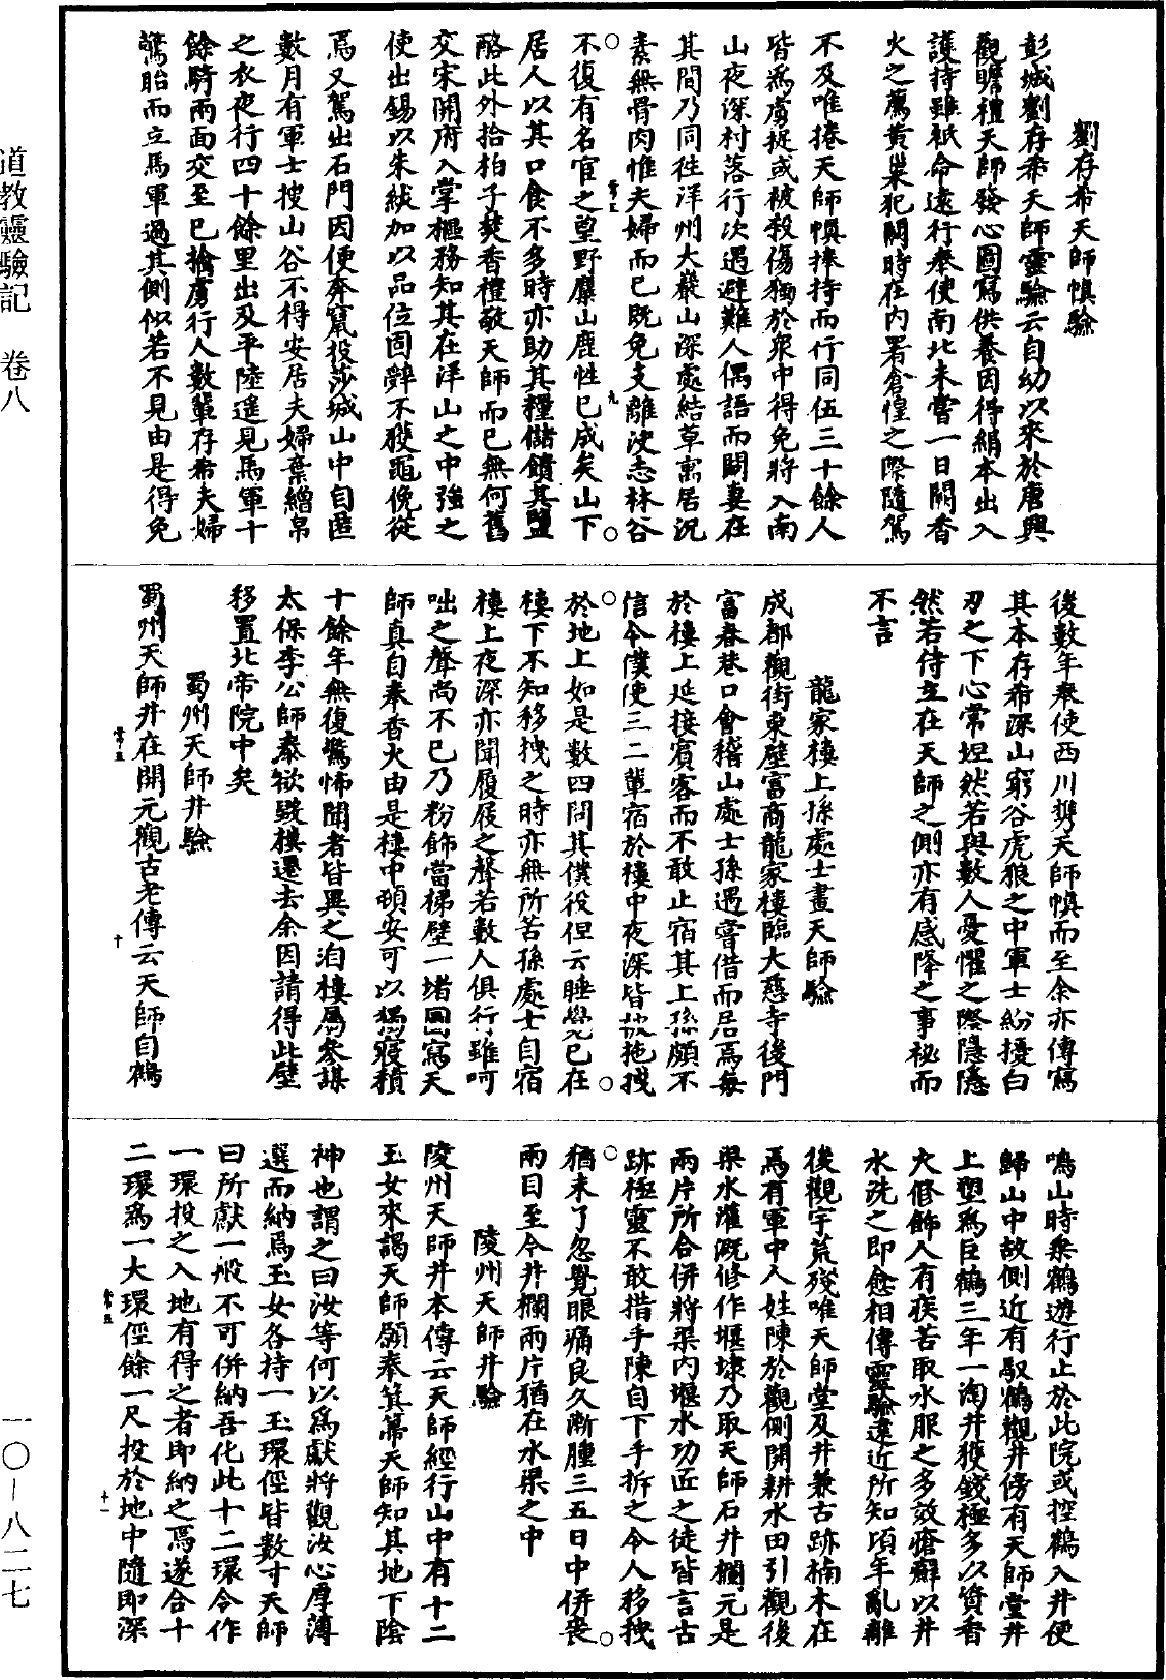 劉存希天師幀驗
彭城劉存希天師靈驗云自幼以來於唐興
觀瞻禮天師發心圖寫供養因得絹本出入
護持雖祇命遠行奉使南北未嘗一日闕香
火之薦黃巢犯闕時在內署倉惶之際隨駕
不及唯捲天師幀捧持而行同伍三十餘人
皆為虜捉或被殺傷獨於衆中得免將入南
山夜深村落行次遇避難人偶語而聞妻在
其間乃同往洋州大巖山深處結草寓居況
素無骨肉惟夫婦而已既免支離決志林谷
不復有名宦之望野麋山鹿性已成矣山下
居人以其口食不多時亦助其糧儲饋其鹽
酪此外拾柏子焚香禮敬天師而已無何舊
交宋開府入掌樞務知其在洋山之中強之
使出錫以朱紱加以品位固辭不獲黽俛從
焉又駕出石門因使奔竄投莎城山中自匿
數月有軍士搜山谷不得安居夫婦棄繒帛
之衣夜行四十餘里出及平陸遙見馬軍十
餘騎兩面交至已擒虜行人數輩存希夫婦
驚眙而立馬軍過其側似若不見由是得免
後數年奉使西川携天師幀而至余亦傳寫
其本存希深山窮谷虎狼之中軍士紛擾白
刃之下心常坦然若與數人憂懼之際隱隱
然若侍立在天師之側亦有感降之事祕而
不言
龍家樓上孫處士畫天師驗
成都觀街東壁富商龍家樓臨大慈寺後門
富春巷口會稽山處士孫遇嘗借而居焉每
於樓上延接賓客而不敢止宿其上孫頗不
信令僕使三二輩宿於樓中夜深皆被拖拽
於地上如是數四問其僕役但云睡覺已在
樓下不知移拽之時亦無所苦孫處士自宿
樓上夜深亦聞履屐之聲若數人俱行雖呵
咄之聲尚不已乃粉飾當梯壁一堵圖寫天
師真自奉香火由是樓中頓安可以獨寢積
十餘年無復驚怖聞者皆異之洎樓屬參謀
太保李公師泰欲毀樓遷去余因請得此壁
移置北帝院中矣
蜀州天師井驗
蜀州天師井在開元觀古老傳云天師自鶴
鳴山時乘鶴遊行止於此院或控鶴入井便
歸山中故側近有馭鶴觀井傍有天師堂井
上塑為巨鶴三年一淘井獲錢極多以資香
火修飾人有疾苦取水服之多效瘡癬以井
水洗之即愈相傳靈驗遠近所知頃年亂離
後觀宇荒殘唯天師堂及井兼古跡楠木在
焉有軍中人姓陳於觀側開耕水田引觀後
渠水灌溉修作堰埭乃取天師石井欄元是
兩片所合併將渠內堰水功匠之徒皆言古
跡極靈不敢措手陳自下手拆之令人移拽
猶未了忽覺眼痛良久漸腫三五日中併喪
兩目至今井欄兩片猶在水渠之中
陵州天師井驗
陵州天師井本傳云天師經行山中有十二
玉女來謁天師願奉箕箒天師知其地下陰
神也謂之曰汝等何以為獻將觀汝心厚薄
選而納焉玉女各持一玉環徑皆數寸天師
曰所獻一般不可併納吾化此十二環令作
一環投之入地有得之者即納之焉遂合十
二環為一大環徑餘一尺投於地中隨即深
道教靈驗記　卷八
一〇－八二七